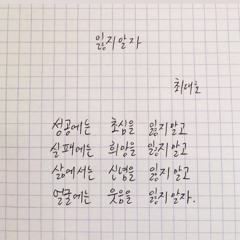 잃지말자
최대호
성공에는 초심을 잃지말고
실패에는 희망을 잃지말고
삶에서는 신념을 잃지말고
얼굴에는 웃음을 잃지말자.